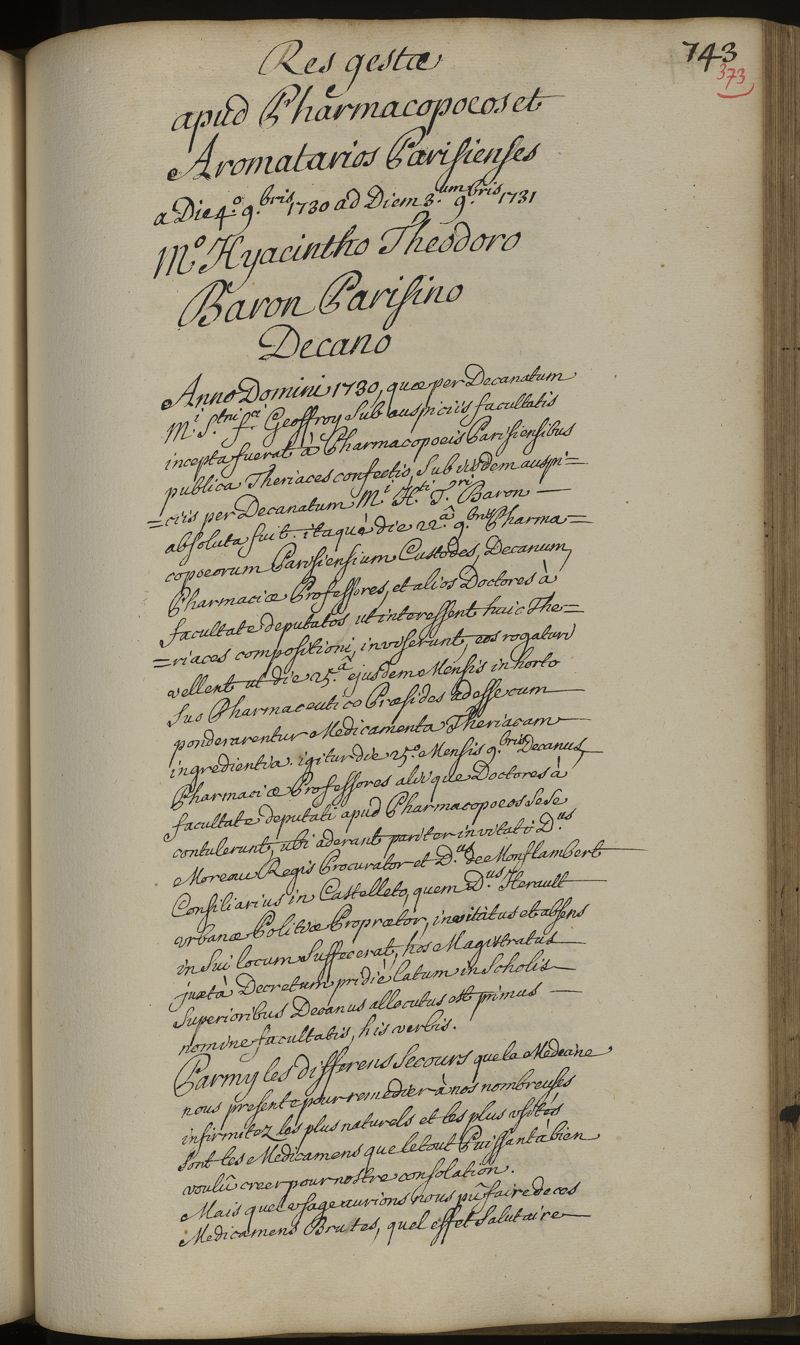 743
373
Res gestæ
apud Pharmacopoeos et
Aromatarios Parisienses
a Die 4.º 9.bris 1730 ad Diem 3.um 9.bris 1731
M.º Hyacintho Theodoro
Baron Parisino
Decano
Anno Domini 1730, quæ per Decanatum
M.i S.tni F.ci Geoffroy sub auspiciis facultatis
incepta fuerat à Pharmacopoeis Parisiensibus
publica Theriaces confectio, sub iisdem auspi=
=ciis per Decanatum M.i H.ti T.ri Baron —
absoluta fuit. itaquè die 22.â 9.bris Pharma=
copoeorum Parisiensium Custodes, Decanum,
Pharmaciæ Professores, et alios Doctores à
facultate deputatos ut interessent huic The=
=riaces compositioni, inviserunt, eos rogaturi
vellent ut die 25.â ejusdem Mensis in horto
suo Pharmaceutico Præsides adesse cum
ponderarentur Medicamenta Theriacam
ingredientia. igitur die 25.º Mensis 9.bris Decanus,
Pharmaciæ Professores alii que Doctores à
facultate deputati apud Pharmacopoeos sese
contulerunt, ubi aderant pariter invitati D.us
Moreau Regis Procurator et D.us de Monflambert
Consiliarius in Castelleto, quem D.us Herault
urbanæ Politiæ Proprætor, invitatus et absens
in sui locum suffecerat, hos Magistratus
juxtà Decretum pridiè latum in Scholis
Superioribus Decanus allocutus est primus —
nomine facultatis, his verbis.
Parmy les differens secours que la Medecine
nous presente pour remedier à nos nombreuses
infirmitez les plus naturels et les plus usités
sont les Medicamens que le tout Puissant à bien
voulû creer pour nostre consolation.
Mais quel usage aurions nous pû faire de ces
Medicamens Brutes, quel effet salutaire